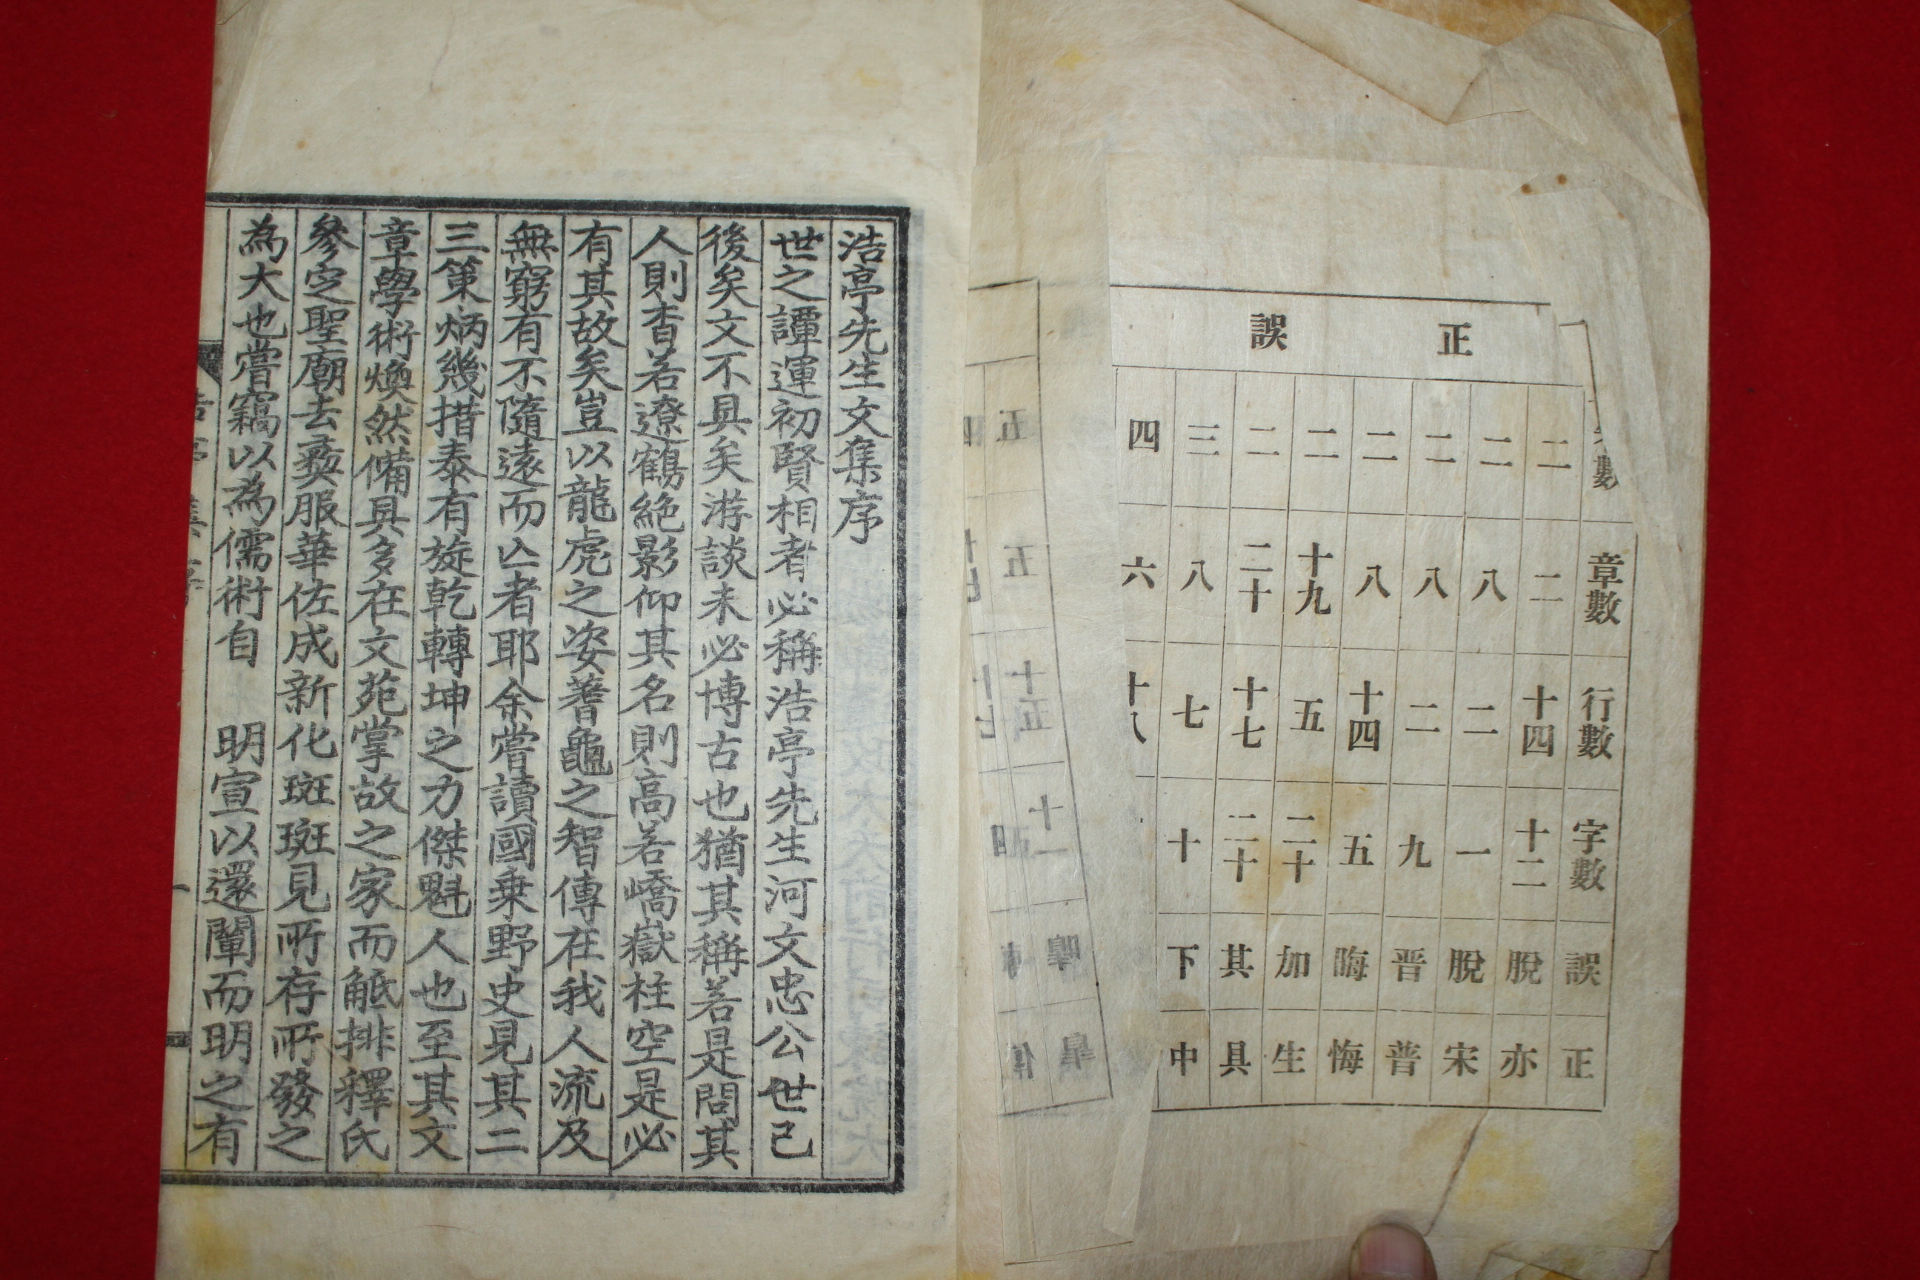 正誤
章數 行數 字數 誤 正
二 二 十四 十二 脫 亦
二 八 二 一 脫 宋
二 八 二 九 晋 普
二 八 十四 五 晦 悔
二 十九 五 二十 加 生
二 二十 十七 二十 其 具
三 八 七 十 下 中
四 六 十八
浩亭先生文集序
世之譚運初賢相者必稱浩亭先生河文忠公世已
後矣文不具矣游談未必博古也猶其稱若是問其
人則杳若遼鶴絶影仰其名則高若嶠嶽柱空是必
有其故矣豈以龍虎之姿蓍龜之智傳在我人流及
無窮有不隨遠而亾者耶余嘗讀國乗野史見其二
三策炳幾措泰有旋乾轉坤之力傑魁人也至其文
章學術煥然備具多在文苑掌故之家而觝排釋氏
參定聖廟去蔾服華佐成新化斑斑見所存所發之
為大也嘗竊以為儒術自 明宣以還闡而明之有